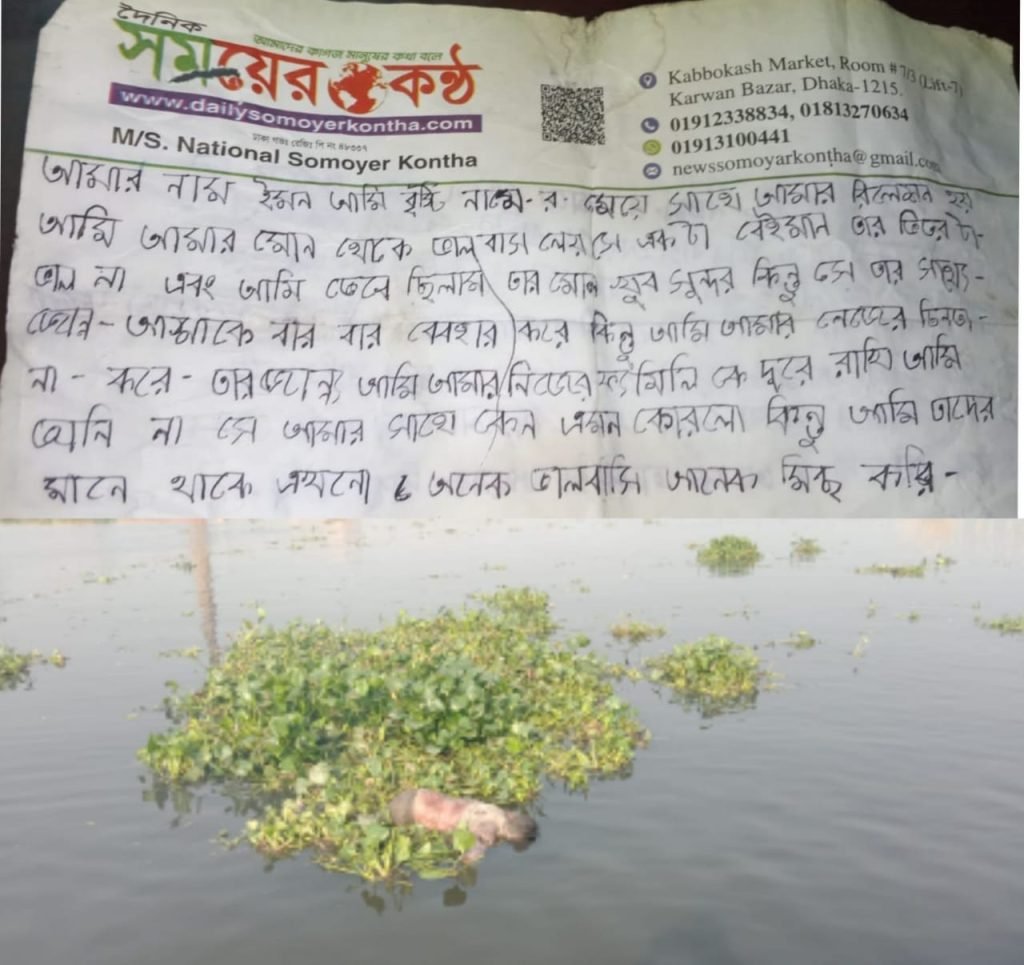 দৈনিক
আমাদের কাগজ মানুষের কথা বলে
সময়ের কণ্ঠ
www.dailysomoyerkontha.com
M/S. National Somoyer Kontha
Kabbokash Market, Room # 7/3 (Lift-7)
Karwan Bazar, Dhaka-1215.
01912338834, 01813270634
01913100441
newssomoyarkontha@gmail.com
আমার নাম ইমন আমি বৃষ্টি নামে-র মেয়ে সাথে আমার রিলেশন হয়
আমি আমার মোন থেকে ভালবাসা সে একটা বেইমান তার ভিতর টা-
ভাল না এবং আমি ভেবে ছিলাম তার মোন খুব সুন্দর কিন্তু সে তার
আমাকে বার বার বেবহার করে কিন্তু আমি আমার
না - করে - আমি আমার নিজের কে দূরে রাখি আমি
যানি না সে আমার সাথে কেন এমন কোরলো কিন্তু আমি তাদের
থাকে এখনো অনেক ভালবাসি অনেক মিছ করি -